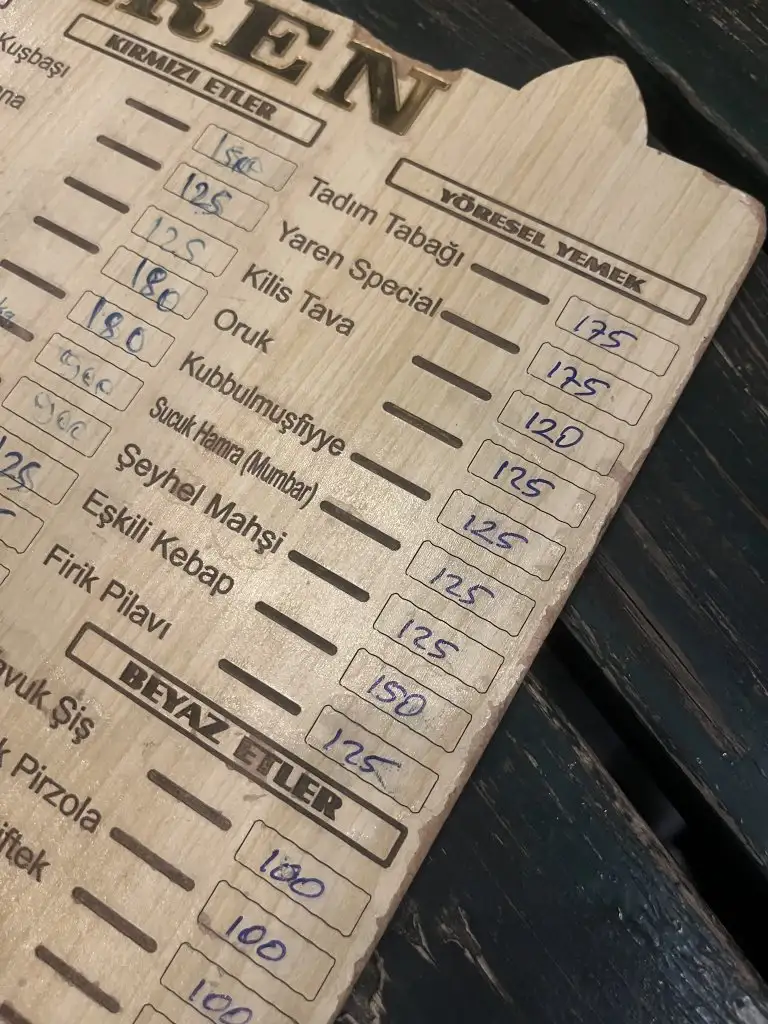 REN
KIRMIZI ETLER
Kuşbaşı
125
125
180
180
YÖRESEL YEMEK
Tadım Tabağı 175
Yaren Special 175
Kilis Tava 120
Oruk 125
Kubbulmuşfiyye 125
Sucuk Hamra (Mumbar) 125
Şeyhel Mahşi 125
Eşkili Kebap 150
Firik Pilavı 125
BEYAZ ETLER
avuk Şiş 100
k Pirzola 100
iftek 100